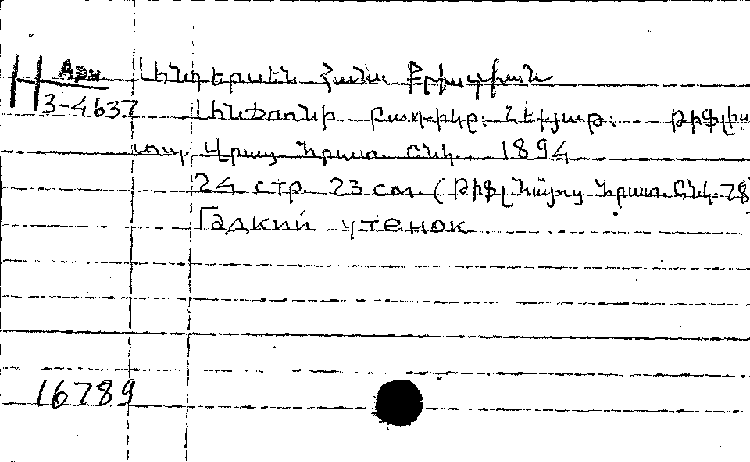 Арм Անդերսեն Հանս Քրիստիան
3-4637 Անճոռնի բադիկը: Հեքյաթ: Թիֆլիս
տպ. Վրաց հրատ. ընկ. 1894
24 стр. 23 см. (Թիֆլ. Հայոց հրատ. ընկ. 78
Гадкий утенок
16789